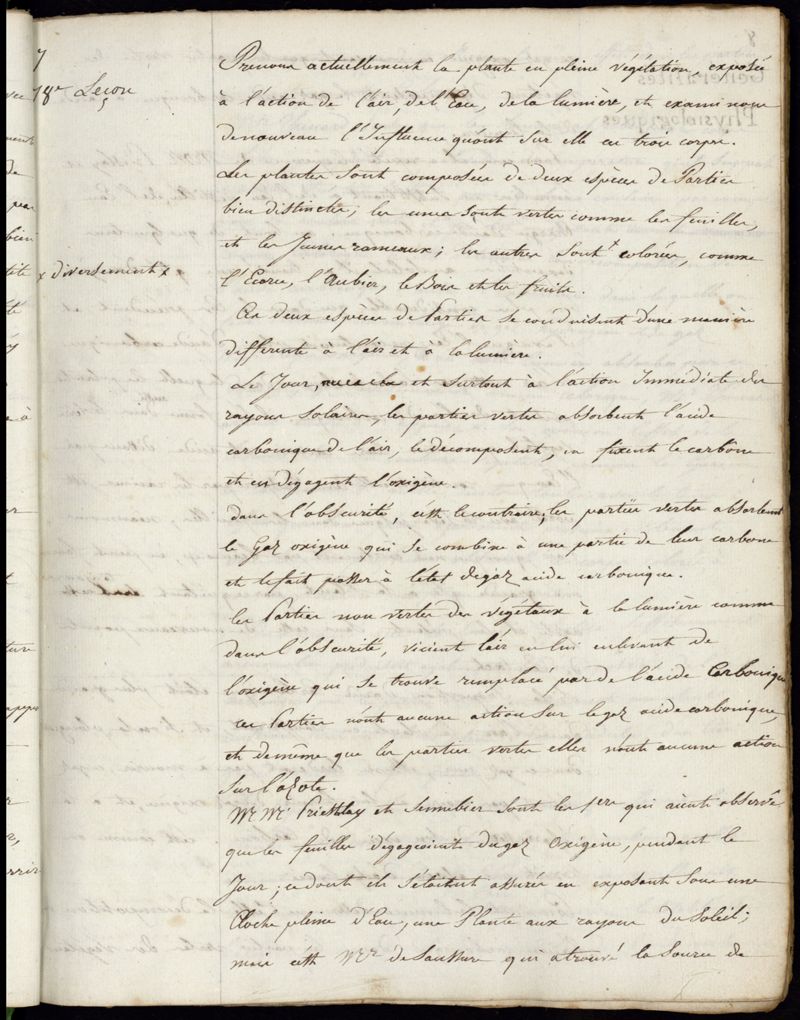 7
8e Leçon
Prenons actuellement la plante en pleine végétation, exposée
à l'action de l'air, de l'Eau, de la lumière, et examinons
denouveau l'Influence qu'ont sur elle ces trois corps.
Les plantes sont composées de deux espèces de Parties
bien distinctes; les unes sont vertes comme les feuilles,
et les Jeunes rameaux; les autres sont x colorées, comme
x diversement x
l'Ecorce, l'Aubier, le Bois et les fruits.
Ces deux espèces de Parties se conduisent d'une manière
differente à l'air et à la lumière.
Le Jour, et surtout à l'action Immédiate des
rayons solaires, les parties vertes absorbent l'acide
carbonique de l'air, le décomposent, en fixent le carbone
et en dégagent l'oxigène.
dans l'obscurité, c'est le contraire; les parties vertes absorbent
le Gaz oxigène qui se combine à une partie de leur carbone
et le fait passer à l'état de gaz acide carbonique.
les Parties non vertes des végétaux à la lumière comme
dans l'obscurité, vicient l'air en lui enlevant de
l'oxigène qui se trouve remplacé par de l'acide Carbonique
ces Parties n'ont aucune action sur le gaz acide carbonique,
et demême que les parties vertes elles n'ont aucune action
sur l'azote.
Mrs Mrs Priesthley et Sennebier sont les 1ers qui aient observé
que les feuilles dégageoient du gaz Oxigène, pendant le
Jour; ce dont ils s'étoient assurés en exposant sous une
Cloche pleine d'Eau, une Plante aux rayons du Soleil;
mais c'est Mr de Saussure qui a trouvé la source de